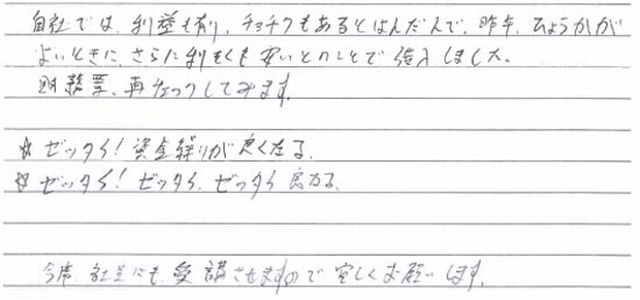 自社では、利益も有り、チョチクもあるとはんだんで、昨年、ひょうかが
よいときに、さらに利そくも安いとのことで借入しました。
財務票、再チェックしてみます。
☆ ゼッタイ！資金繰りが良くなる、
☆ ゼッタイ！ゼッタイ、ゼッタイ良なる、
今度、社員にも受講させますので宜しくお願いします。